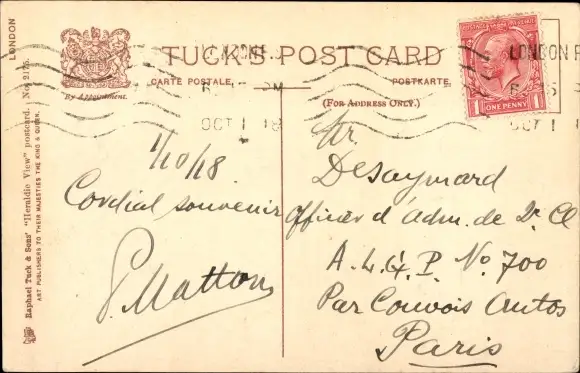 TUCK'S POST CARD
CARTE POSTALE.
POSTKARTE
By Appointment.
(For Address Only.)
LONDON
LONDON
OCT 1 18
OCT 1
ONE PENNY
LONDON
Raphael Tuck & Sons' "Heraldic View" postcard. No. 2175.
ART PUBLISHERS TO THEIR MAJESTIES THE KING & QUEEN.
1/10/18
Cordial souvenir
P. Matton
Mr.
Desaymard
Officier d'adm. de 2e Cl
A.L.G.P. No. 700
Par Convois Autos
Paris